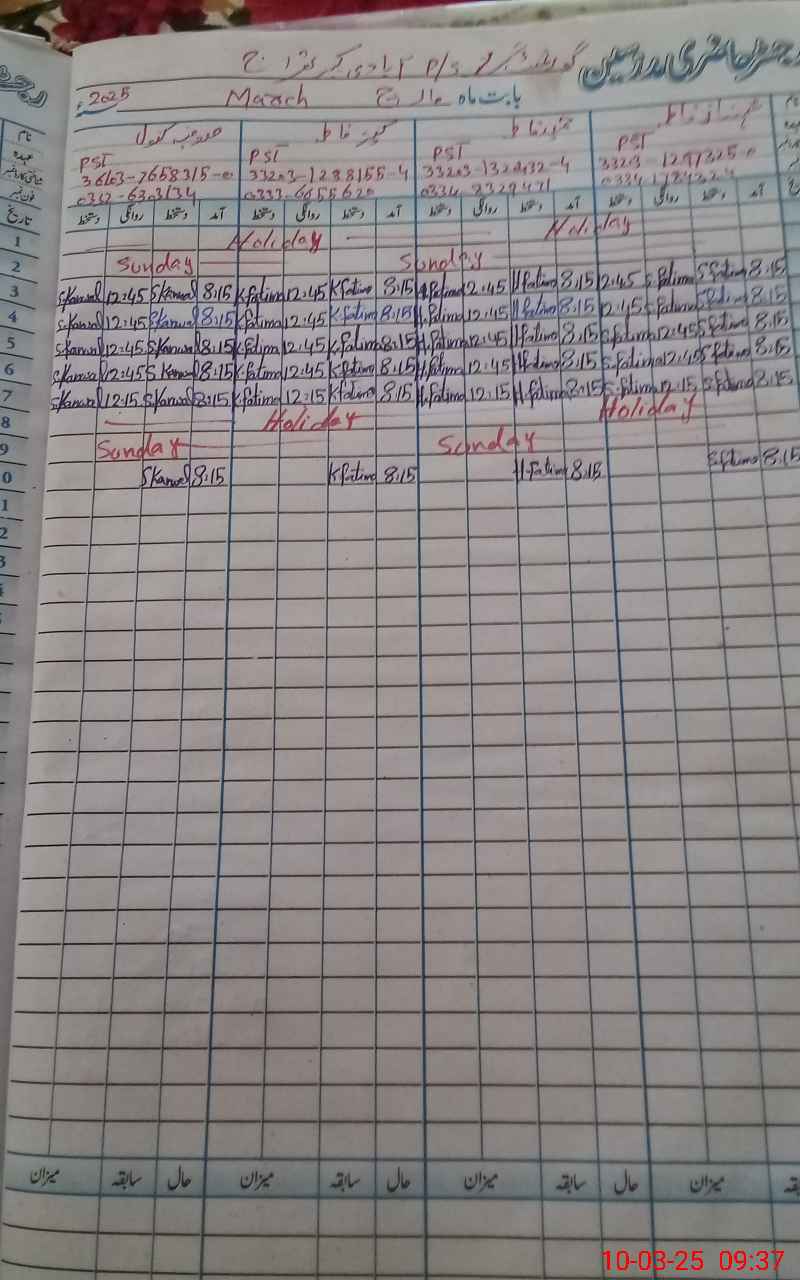 رجسٹر حاضری مدرسین گورنمنٹ گرلز P/S آبادی
بابت ماہ مارچ March 2025ء
نام
عہدہ PST PST PST PST
شناختی کارڈ نمبر 33203-1288155-4 36103-7658315-0
فون نمبر 0333-6655620 0312-6303134
تاریخ آمد دستخط روانگی دستخط آمد دستخط روانگی دستخط آمد دستخط روانگی دستخط آمد دستخط روانگی دستخط
1 Holiday Holiday
2 Sunday Sunday
3 S.Kanwal 12:45 S.Kanwal 8:15 K.fatima 12:45 K.fatima 8:15 H.fatima 12:45 H.fatima 8:15 12:45 S.fatima S.fatima 8:15
4 S.Kanwal 12:45 S.Kanwal 8:15 K.fatima 12:45 K.fatima 8:15 H.fatima 12:45 H.fatima 8:15 12:45 S.fatima S.fatima 8:15
5 S.Kanwal 12:45 S.Kanwal 8:15 K.fatima 12:45 K.fatima 8:15 H.fatima 12:45 H.fatima 8:15 S.fatima 12:45 S.fatima 8:15
6 S.Kanwal 12:45 S.Kanwal 8:15 K.fatima 12:45 K.fatima 8:15 H.fatima 12:45 H.fatima 8:15 S.fatima 12:45 S.fatima 8:15
7 S.Kanwal 12:15 S.Kanwal 8:15 K.fatima 12:15 K.fatima 8:15 H.fatima 12:15 H.fatima 8:15 S.fatima 12:15 S.fatima 8:15
8 Holiday Holiday
9 Sunday Sunday
0 S.Kanwal 8:15 K.fatima 8:15 H.fatima 8:15 S.fatima 8:15
1
2
3
میزان سابقہ حال میزان سابقہ حال میزان سابقہ حال میزان
10-03-25 09:37